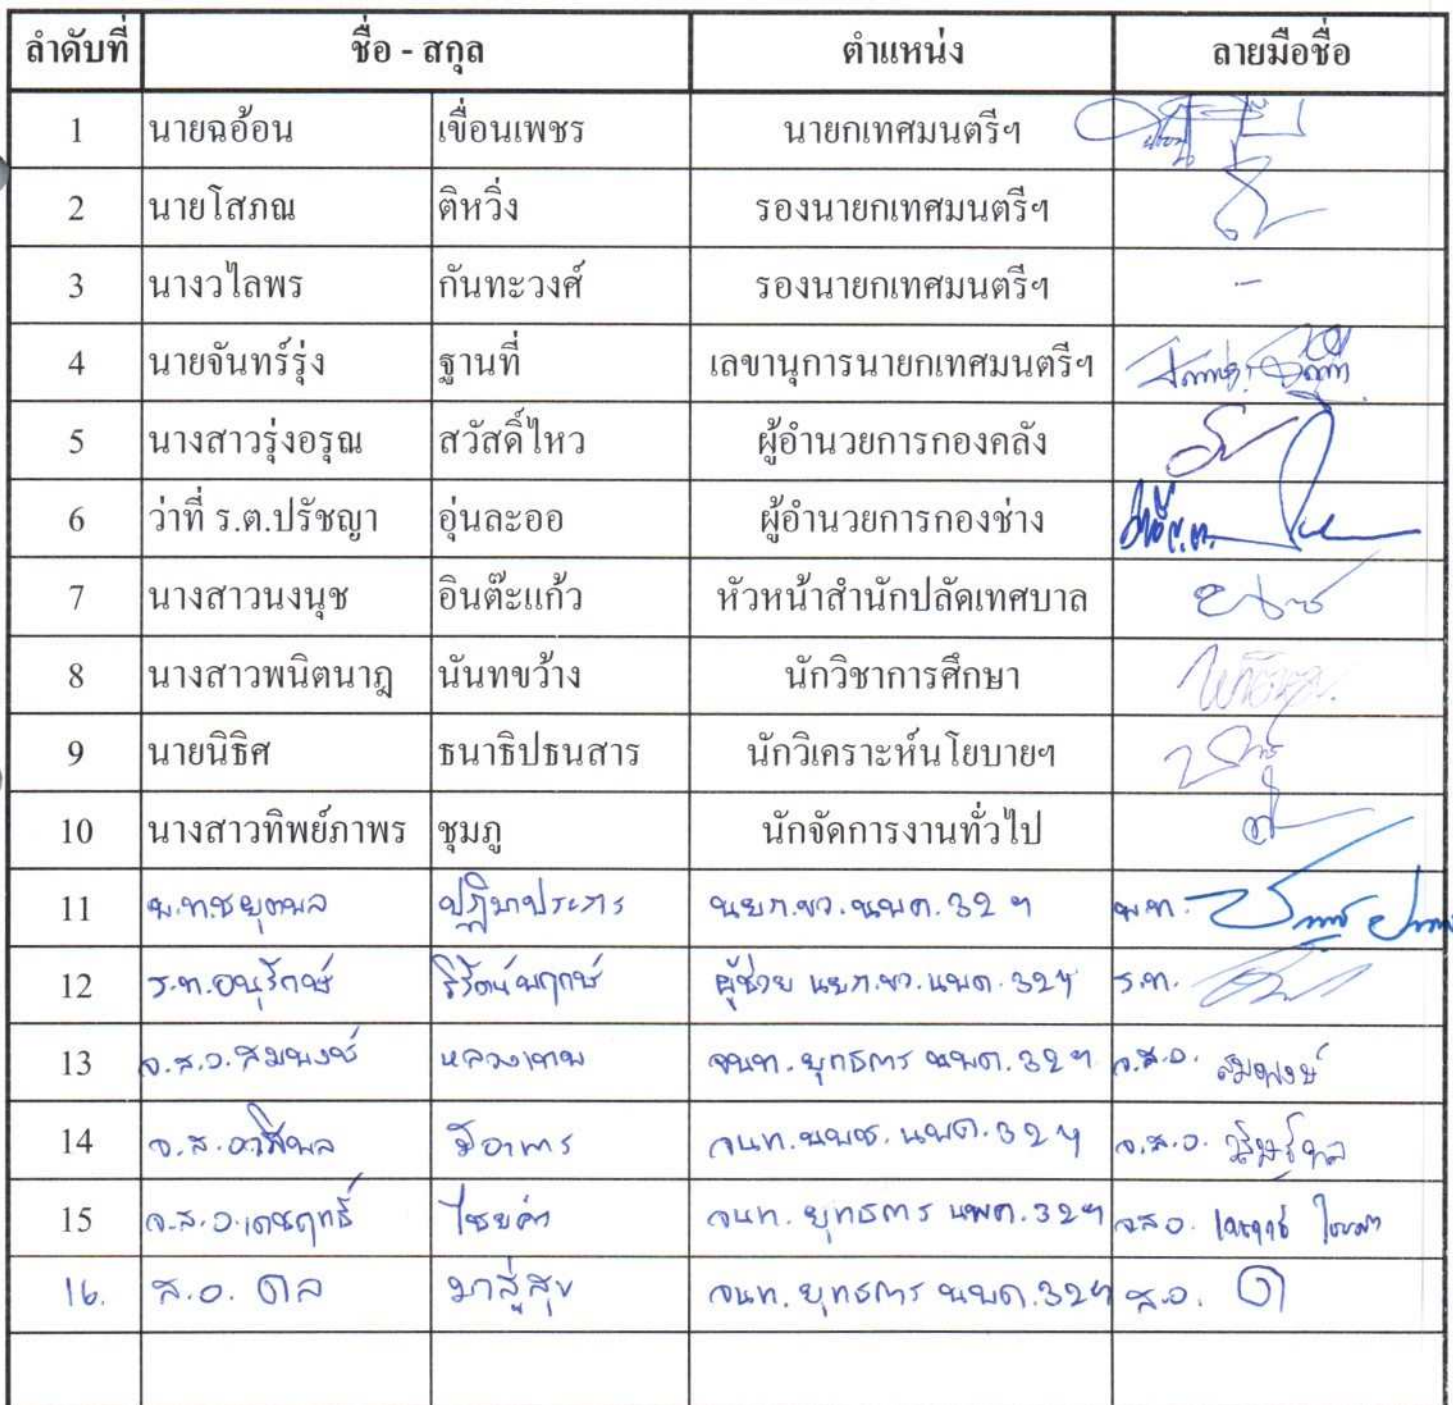 ลำดับที่ ชื่อ - สกุล ตำแหน่ง ลายมือชื่อ
1 นายฉอ้อน เขื่อนเพชร นายกเทศมนตรีฯ
2 นายโสภณ ติหวิ่ง รองนายกเทศมนตรีฯ
3 นางวไลพร กันทะวงศ์ รองนายกเทศมนตรีฯ -
4 นายจันทร์รุ่ง ฐานที่ เลขานุการนายกเทศมนตรีฯ
5 นางสาวรุ่งอรุณ สวัสดิ์ไหว ผู้อำนวยการกองคลัง
6 ว่าที่ ร.ต.ปรัชญา อุ่นละออ ผู้อำนวยการกองช่าง ว่าที่ ร.ต.
7 นางสาวนงนุช อินต๊ะแก้ว หัวหน้าสำนักปลัดเทศบาล
8 นางสาวพนิตนาฎ นันทขว้าง นักวิชาการศึกษา
9 นายนิธิศ ธนาธิปธนสาร นักวิเคราะห์นโยบายฯ
10 นางสาวทิพย์ภาพร ชุมภู นักจัดการงานทั่วไป
11 พ.ท.ชยุตพล นยก.ขว.นพค.32 ฯ พ.ท.
12 ร.ท.อนุรักษ์ ผู้ช่วย นยก.ขว.นพค.32ฯ ร.ท.
13 จ.ส.อ.สมพงษ์ หลวงเทพ จนท.ยุทธการ นพค.32ฯ จ.ส.อ. สมพงษ์
14 จ.ส.อ. มีอาการ จนท. นพค.32ฯ จ.ส.อ.
15 จ.ส.อ.เดชฤทธิ์ ไชยคำ จนท.ยุทธการ นพค.32ฯ จสอ. เดชฤทธิ์ ไชยคำ
16. ส.อ. ดล มาสู่สุข จนท.ยุทธการ นพค.32ฯ ส.อ. ด